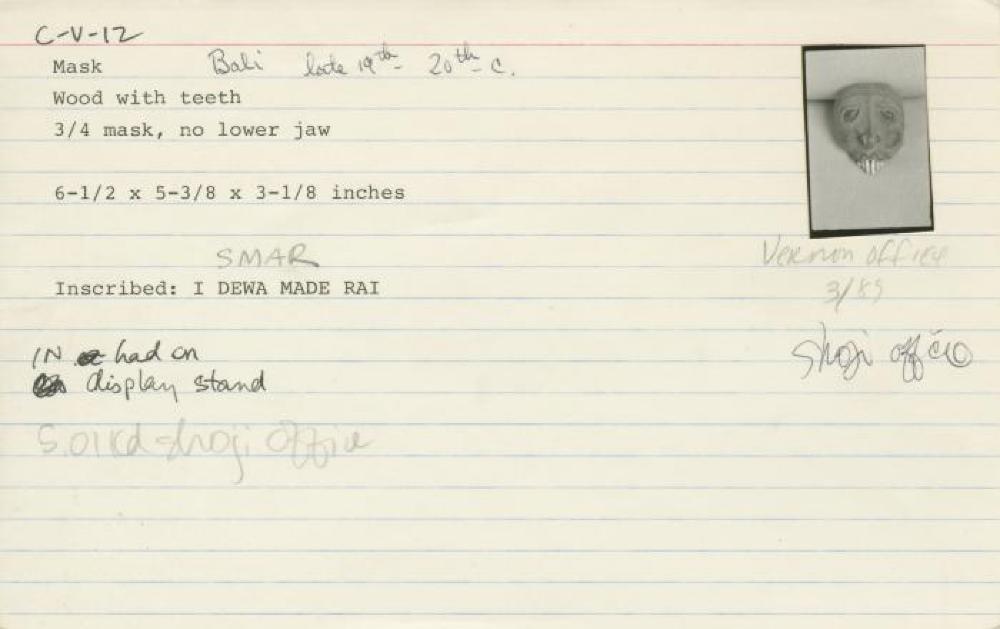 C-V-12
Mask Bali late 19th - 20th c.
Wood with teeth
3/4 mask, no lower jaw
6-1/2 x 5-3/8 x 3-1/8 inches
SMAR
Inscribed: I DEWA MADE RAI
Vernon office
3/89
IN had on
display stand
shoji office
shoji office